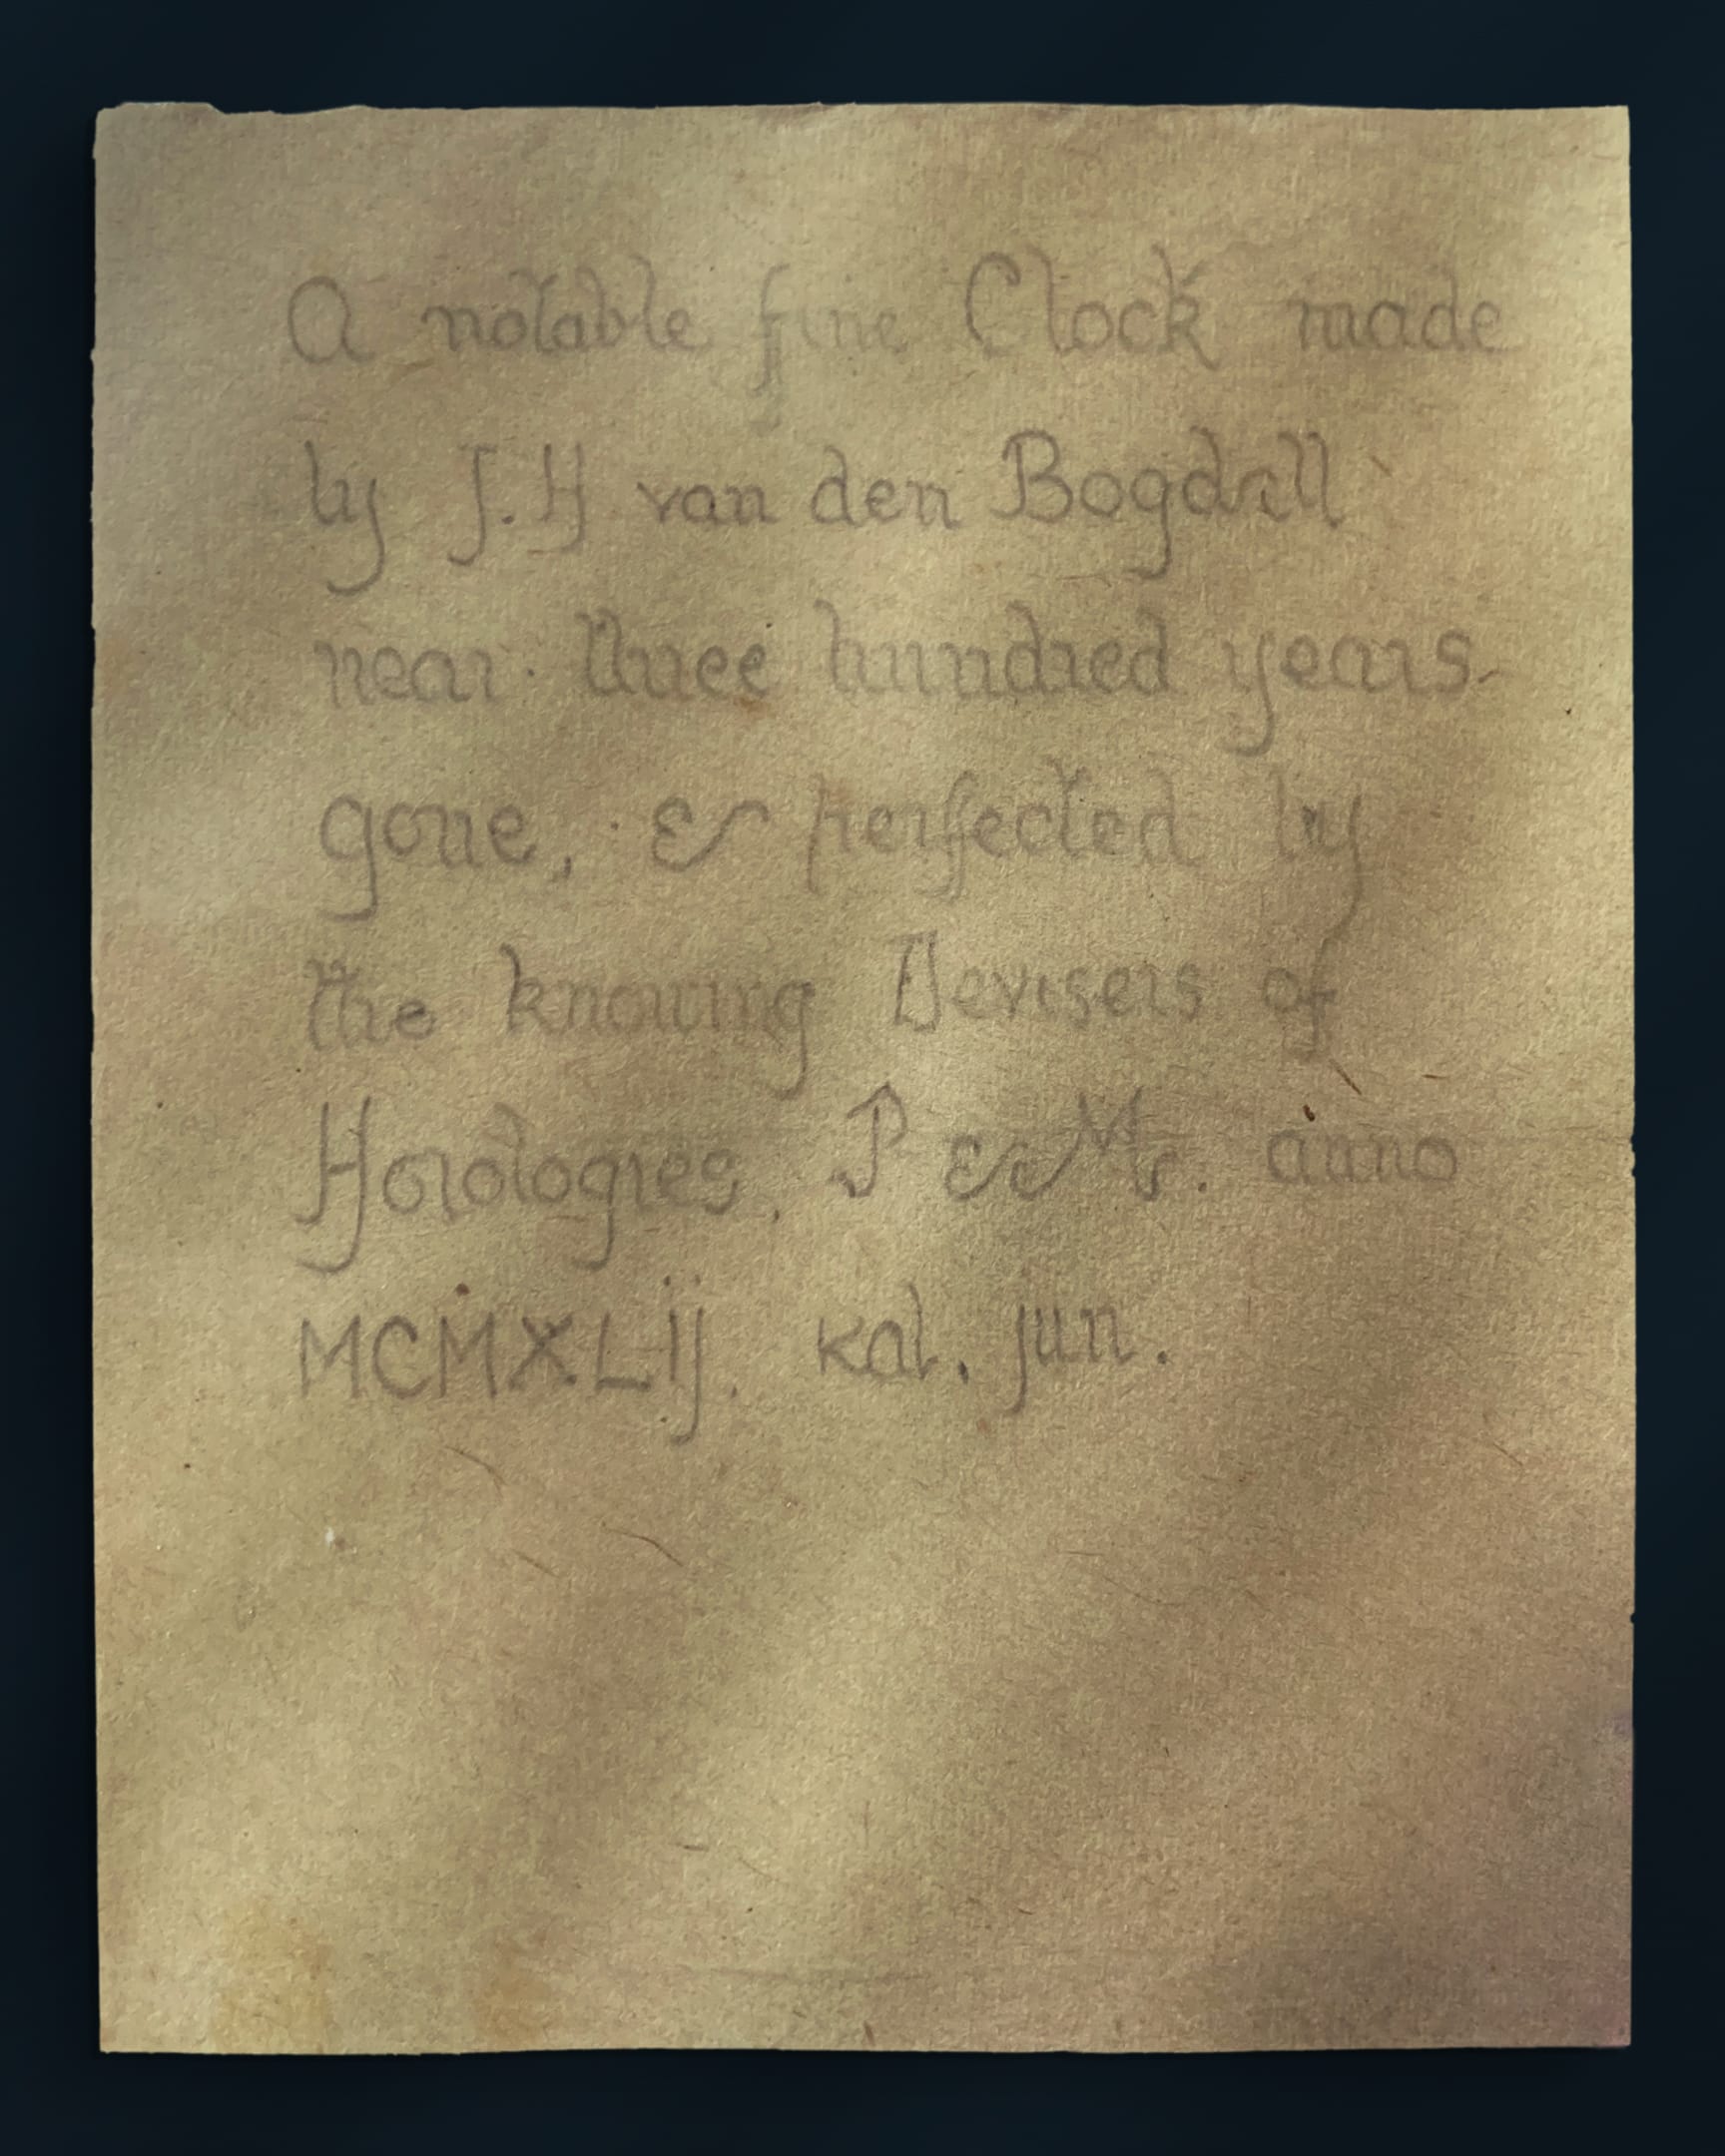 A notable fine Clock made
by J.H van den Bogdall
near three hundred years
gone, & perfected by
the knowing Devisers of
Horologies, P & Ms. anno
MCMXLij. kal. jun.